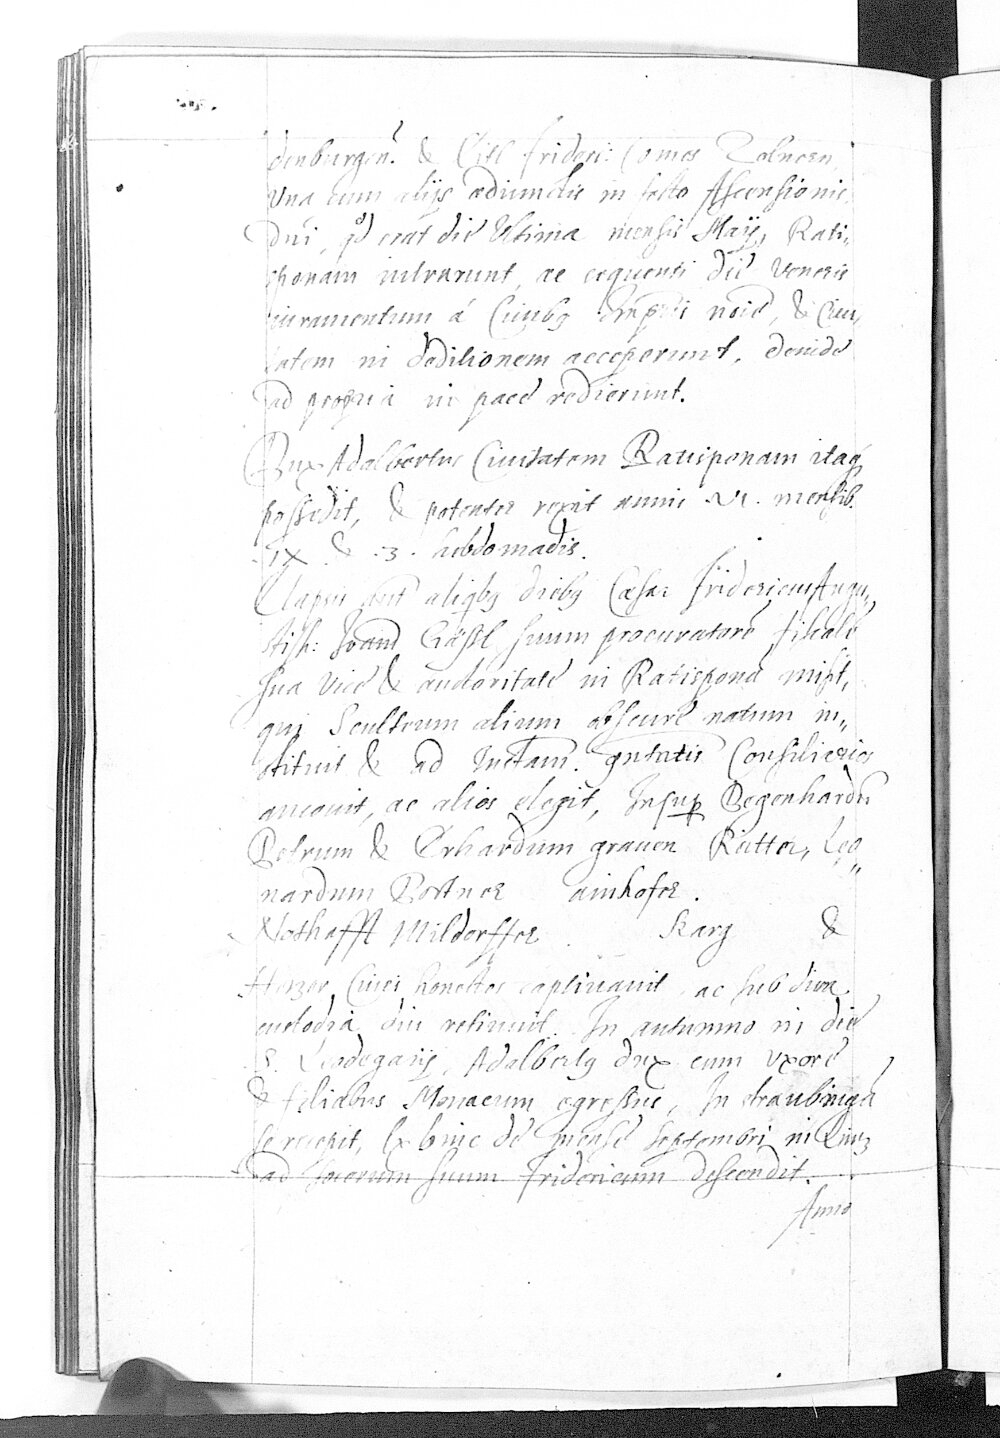 denburgen. & Eitl frideri: Comes Zolneren
Una cum alijs adiunctis in festo Ascensionis
Dni, qd erat die Ultima mensis Maij, Rati„
sponam intrarunt, ac sequenti die Veneris
iuramentum á Ciuibq Imprs noie, & Ciui„
tatem in deditionem acceperunt, deinde
ad propria in pace redierunt.
Dux Adalbertus Ciuitatem Ratisponam itaq
possedit, & potenter rexit annis .VI. mensib.
.IX. & .3. hebdomadis.
Elapsis aut aliqbq diebq Cæsar fridericus Augu„
stiss: suum procuratore fiskale
sua vice & auctoritate in Ratispona misit,
qui Scultetum alium obscure natum in„
stituit & ad Consiliarios
amouit, ac alios elegit, Insup Degenhardu
Petrum & Erhardum grauen Reitter, Leo„
nardum Portner ainhofer.
Nothafft Mildorffer Karg &
Ciues honestos captiuauit ac sub dira
custodia diu retinuit. In autumno in die
S. Leodegarij, Adalbertq dux cum vxore
& filiabus Monacum egressus, In straubinga
se recepit, Ex hinc de mense septembri in Lintz
ad socerum suum fridericum descendit.
Anno